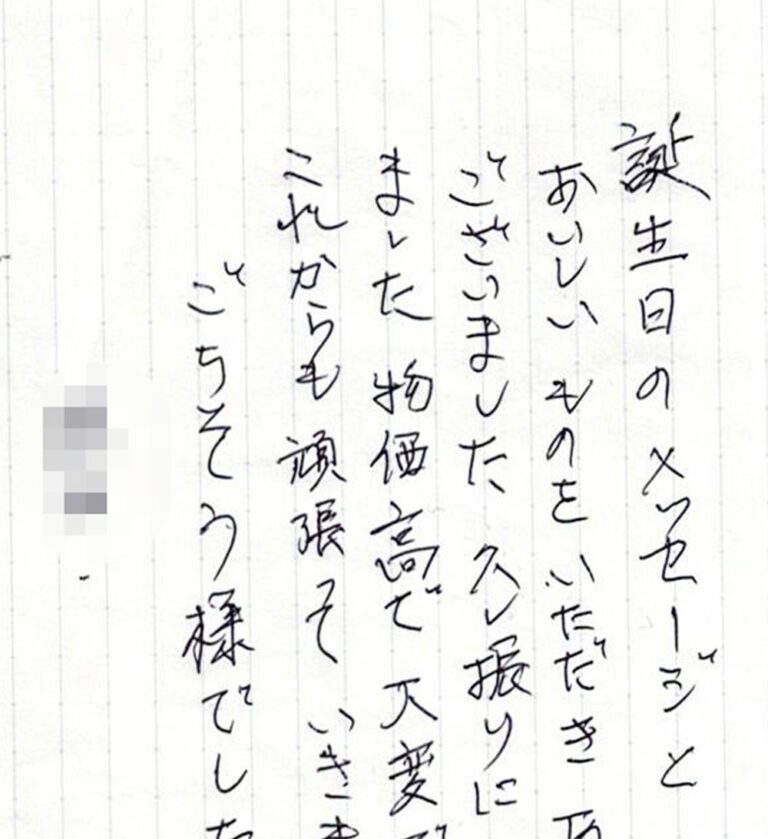 誕生日のメッセージと
おいしいものをいただき
ございました、久し振りに
ました物価高で大変で
これからも頑張っていきま
ごちそう様でした